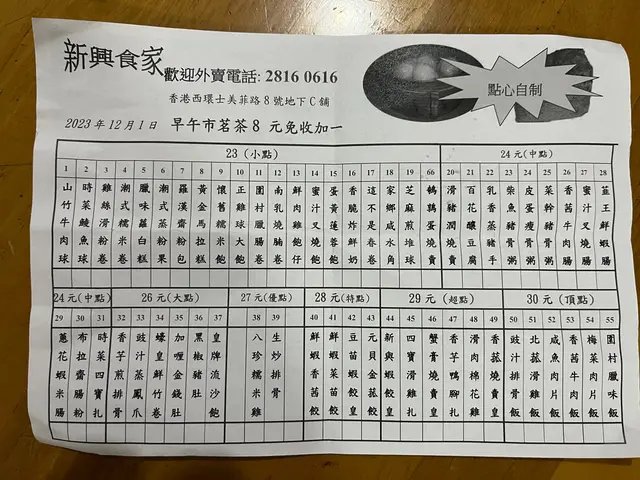 新興食家
歡迎外賣電話: 2816 0616
點心自制
香港西環士美菲路8號地下C舖
2023年12月1日 早午市茗茶8 元免收加一
23 (小點) 24元(中點)
1 山竹牛肉球
2 時菜鯪魚球
3 雞絲滑粉卷
4 潮式糯米卷
5 臘味蘿白糕
6 潮式蒸粉果
7 羅漢齋粉包
8 黃金馬拉糕
9 懷舊糯米飽
10 正雞球大飽
11 圍村臘腸卷
12 南乳燒腩卷
13 鮮肉雞飽仔
14 蜜汁叉燒飽
15 蛋黃蓮蓉飽
16 香脆炸鮮奶
17 這不是春卷
18 家鄉咸水角
19 芝麻煎堆球
66 鵪鶉蛋燒賣
20 滑豬潤燒賣
21 百花釀豆腐
22 乳香蒸豬手
23 柴魚豬骨粥
24 皮蛋瘦骨粥
25 菜幹豬骨粥
26 香茜牛肉腸
27 蜜汁叉燒腸
28 韮王鮮蝦腸
24元(中點) 26元(大點) 27元(優點) 28元(特點) 29元 (超點) 30元 (頂點)
29 蔥花蝦米腸
30 布拉齋腸粉
31 時菜四寶扎
32 香芋煎排骨
33 豉汁蒸鳳爪
34 蠔皇鮮竹卷
35 加喱金錢肚
36 黑椒豬肚
37 皇牌流沙飽
38 八珍糯米雞
39 生炒排骨
40 鮮蝦香茜餃
41 鮮蝦菜苗餃
42 豆苗蝦餃
43 元貝金菰餃
44 新興蝦餃皇
45 四寶滑雞扎
46 蟹膏燒賣皇
47 香芋鴨腳扎
48 滑肉棉花雞
49 香菇滑雞飯
50 豉汁排骨飯
51 北菰滑雞飯
52 咸魚肉片飯
53 香茜牛肉飯
54 梅菜肉片飯
55 圍村臘味飯